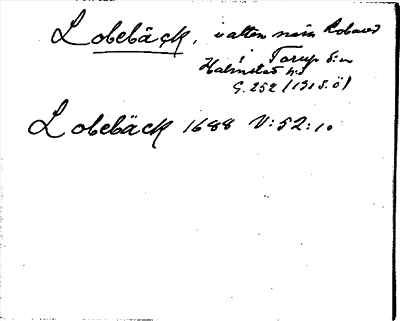 Lobebäck, i allén nära
i Torup s:n
Halmstad h:d
G. 252 (1915. ö)
Lobebäck 1688 V:52:10